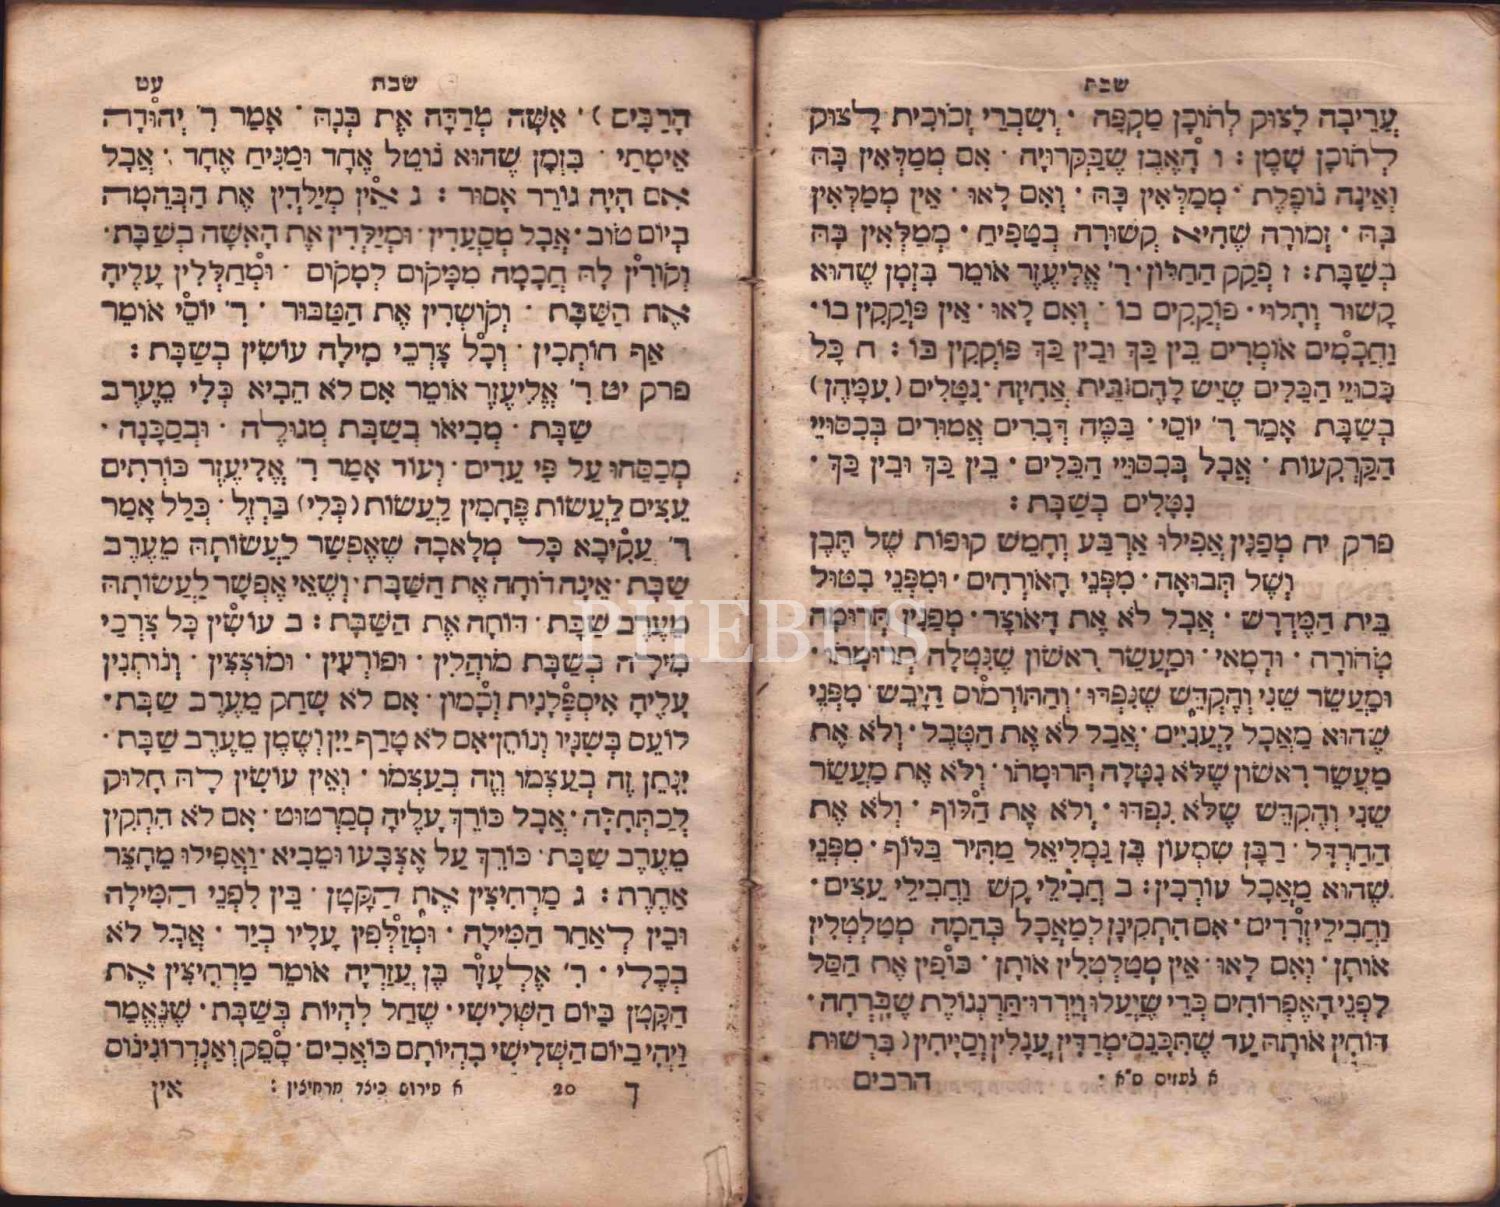 שבת
עֲרֵיבָה לָצוּק לְתוֹכָן מִקְפָּה · וְשִׁבְרֵי זְכוּכִית לָצוּק
לְתוֹכָן שָׁמֶן : ו הָאֶבֶן שֶׁבַּקְּרוּיָה · אִם מְמַלְּאִין בָּהּ
וְאֵינָהּ נוֹפֶלֶת · מְמַלְּאִין בָּהּ · וְאִם לָאו · אֵין מְמַלְּאִין
בָּהּ · זְמוֹרָה שֶׁהִיא קְשׁוּרָה בְטָפִיחַ · מְמַלְּאִין בָּהּ
בְּשַׁבָּת : ז פְּקַק הַחַלּוֹן · ר' אֱלִיעֶזֶר אוֹמֵר בִּזְמַן שֶׁהוּא
קָשׁוּר וְתָלוּי · פּוֹקְקִים בּוֹ · וְאִם לָאו · אֵין פּוֹקְקִין בּוֹ ·
וַחֲכָמִים אוֹמְרִים בֵּין כַּךְ וּבֵין כַּךְ פּוֹקְקִין בּוֹ : ח כָּל
כִּסּוּיֵי הַכֵּלִים שֶׁיֵּשׁ לָהֶם בֵּית אֲחִיזָה · נִטָּלִים (עִמָּהֶן)
בְּשַׁבָּת אָמַר ר' יוֹסֵי · בַּמֶּה דְבָרִים אֲמוּרִים בְּכִסּוּיֵי
הַקַּרְקָעוֹת · אֲבָל בְּכִסּוּיֵי הַכֵּלִים · בֵּין כַּךְ וּבֵין כַּךְ ·
נִטָּלִים בְּשַׁבָּת :
פרק יח מְפַנִּין אֲפִילוּ אַרְבַּע וְחָמֵשׁ קוּפּוֹת שֶׁל תֶּבֶן
וְשֶׁל תְּבוּאָה · מִפְּנֵי הָאוֹרְחִים · וּמִפְּנֵי בִטּוּל
בֵּית הַמִּדְרָשׁ · אֲבָל לֹא אֶת הָאוֹצָר · מְפַנִּין תְּרוּמָה
טְהוֹרָה · וּדְמַאי · וּמַעֲשֵׂר רִאשׁוֹן שֶׁנִּטְּלָה תְרוּמָתוֹ ·
וּמַעֲשֵׂר שֵׁנִי וְהֶקְדֵּשׁ שֶׁנִּפְדּוּ · וְהַתּוּרְמוֹס הַיָּבֵשׁ · מִפְּנֵי
שֶׁהוּא מַאֲכָל לָעֲנִיִּים · אֲבָל לֹא אֶת הַטֶּבֶל · וְלֹא אֶת
מַעֲשֵׂר רִאשׁוֹן שֶׁלֹּא נִטְּלָה תְּרוּמָתוֹ · וְלֹא אֶת מַעֲשֵׂר
שֵׁנִי וְהֶקְדֵּשׁ שֶׁלֹּא נִפְדּוּ · וְלֹא אֶת הַלּוּף · וְלֹא אֶת
הַחַרְדָּל · רַבָּן שִׁמְעוֹן בֶּן גַּמְלִיאֵל מַתִּיר בַּלּוּף · מִפְּנֵי
שֶׁהוּא מַאֲכָל עוֹרְבִין : ב חֲבִילֵי קַשׁ וַחֲבִילֵי עֵצִים ·
וַחֲבִילֵי זְרָדִים · אִם הִתְקִינָן לְמַאֲכָל בְּהֵמָה מְטַלְטְלִין
אוֹתָן · וְאִם לָאו · אֵין מְטַלְטְלִין אוֹתָן · כּוֹפִין אֶת הַסַּל
לִפְנֵי הָאֶפְרוֹחִים כְּדֵי שֶׁיַּעֲלוּ וְיֵרְדוּ · תַּרְנְגוֹלֶת שֶׁבָּרְחָה ·
דּוֹחִין אוֹתָהּ עַד שֶׁתִּכָּנֵס · מְדַדִּין עֲגָלִין וְסַיָּיחִין (בִּרְשׁוּת
א לעזים ס"א · הרבים
שבת עט
הָרַבִּים) · אִשָּׁה מְדַדָּה אֶת בְּנָהּ · אָמַר ר' יְהוּדָה
אֵימָתַי · בִּזְמַן שֶׁהוּא נוֹטֵל אֶחָד וּמַנִּיחַ אֶחָד · אֲבָל
אִם הָיָה גוֹרֵר אָסוּר : ג אֵין מְיַלְּדִין אֶת הַבְּהֵמָה
בְּיוֹם טוֹב · אֲבָל מְסַעֲדִין · וּמְיַלְּדִין אֶת הָאִשָּׁה בְּשַׁבָּת ·
וְקוֹרִין לָהּ חֲכָמָה מִמָּקוֹם לְמָקוֹם · וּמְחַלְּלִין עָלֶיהָ
אֶת הַשַּׁבָּת · וְקוֹשְׁרִין אֶת הַטַּבּוּר · ר' יוֹסֵי אוֹמֵר
אַף חוֹתְכִין · וְכָל צָרְכֵי מִילָה עוֹשִׂין בְּשַׁבָּת :
פרק יט ר' אֱלִיעֶזֶר אוֹמֵר אִם לֹא הֵבִיא כְּלִי מֵעֶרֶב
שַׁבָּת · מְבִיאוֹ בְשַׁבָּת מְגוּלֶּה · וּבְסַכָּנָה ·
מְכַסֵּהוּ עַל פִּי עֵדִים · וְעוֹד אָמַר ר' אֱלִיעֶזֶר כּוֹרְתִים
עֵצִים לַעֲשׂוֹת פֶּחָמִין לַעֲשׂוֹת (כְּלִי) בַרְזֶל · כְּלַל אָמַר
ר' עֲקִיבָא כָּל מְלָאכָה שֶׁאֶפְשָׁר לַעֲשׂוֹתָהּ מֵעֶרֶב
שַׁבָּת · אֵינָהּ דוֹחָה אֶת הַשַּׁבָּת · וְשֶׁאֵי אֶפְשָׁר לַעֲשׂוֹתָהּ
מֵעֶרֶב שַׁבָּת · דּוֹחָה אֶת הַשַּׁבָּת : ב עוֹשִׂין כָּל צָרְכֵי
מִילָה בְשַׁבָּת מוֹהֲלִין · וּפוֹרְעִין · וּמוֹצְצִין · וְנוֹתְנִין
עָלֶיהָ אִיסְפְּלָנִית וְכָמוֹן · אִם לֹא שָׁחַק מֵעֶרֶב שַׁבָּת ·
לוֹעֵס בְּשִׁנָּיו וְנוֹתֵן · אִם לֹא טָרַף יַיִן וְשֶׁמֶן מֵעֶרֶב שַׁבָּת ·
יִנָּתֵן זֶה בְעַצְמוֹ וְזֶה בְעַצְמוֹ · וְאֵין עוֹשִׂין לָהּ חָלוּק
לְכַתְּחִלָּה · אֲבָל כּוֹרֵךְ עָלֶיהָ סְמַרְטוּט · אִם לֹא הִתְקִין
מֵעֶרֶב שַׁבָּת · כּוֹרֵךְ עַל אֶצְבָּעוֹ וּמֵבִיא · וַאֲפִילוּ מֵחָצֵר
אַחֶרֶת : ג מַרְחִיצִין אֶת הַקָּטָן · בֵּין לִפְנֵי הַמִּילָה
וּבֵין לְאַחַר הַמִּילָה · וּמְזַלְּפִין עָלָיו בְּיָד · אֲבָל לֹא
בִכְלִי · ר' אֶלְעָזָר בֶּן עֲזַרְיָה אוֹמֵר מַרְחִיצִין אֶת
הַקָּטָן בַּיּוֹם הַשְּׁלִישִׁי · שֶׁחָל לִהְיוֹת בְּשַׁבָּת · שֶׁנֶּאֱמַר
וַיְהִי בַיּוֹם הַשְּׁלִישִׁי בִּהְיוֹתָם כּוֹאֲבִים · סָפֵק וְאַנְדְרוֹגִינוֹס
ך 20 א פירוט כיצד מרחיצין : אין
PHEBUS